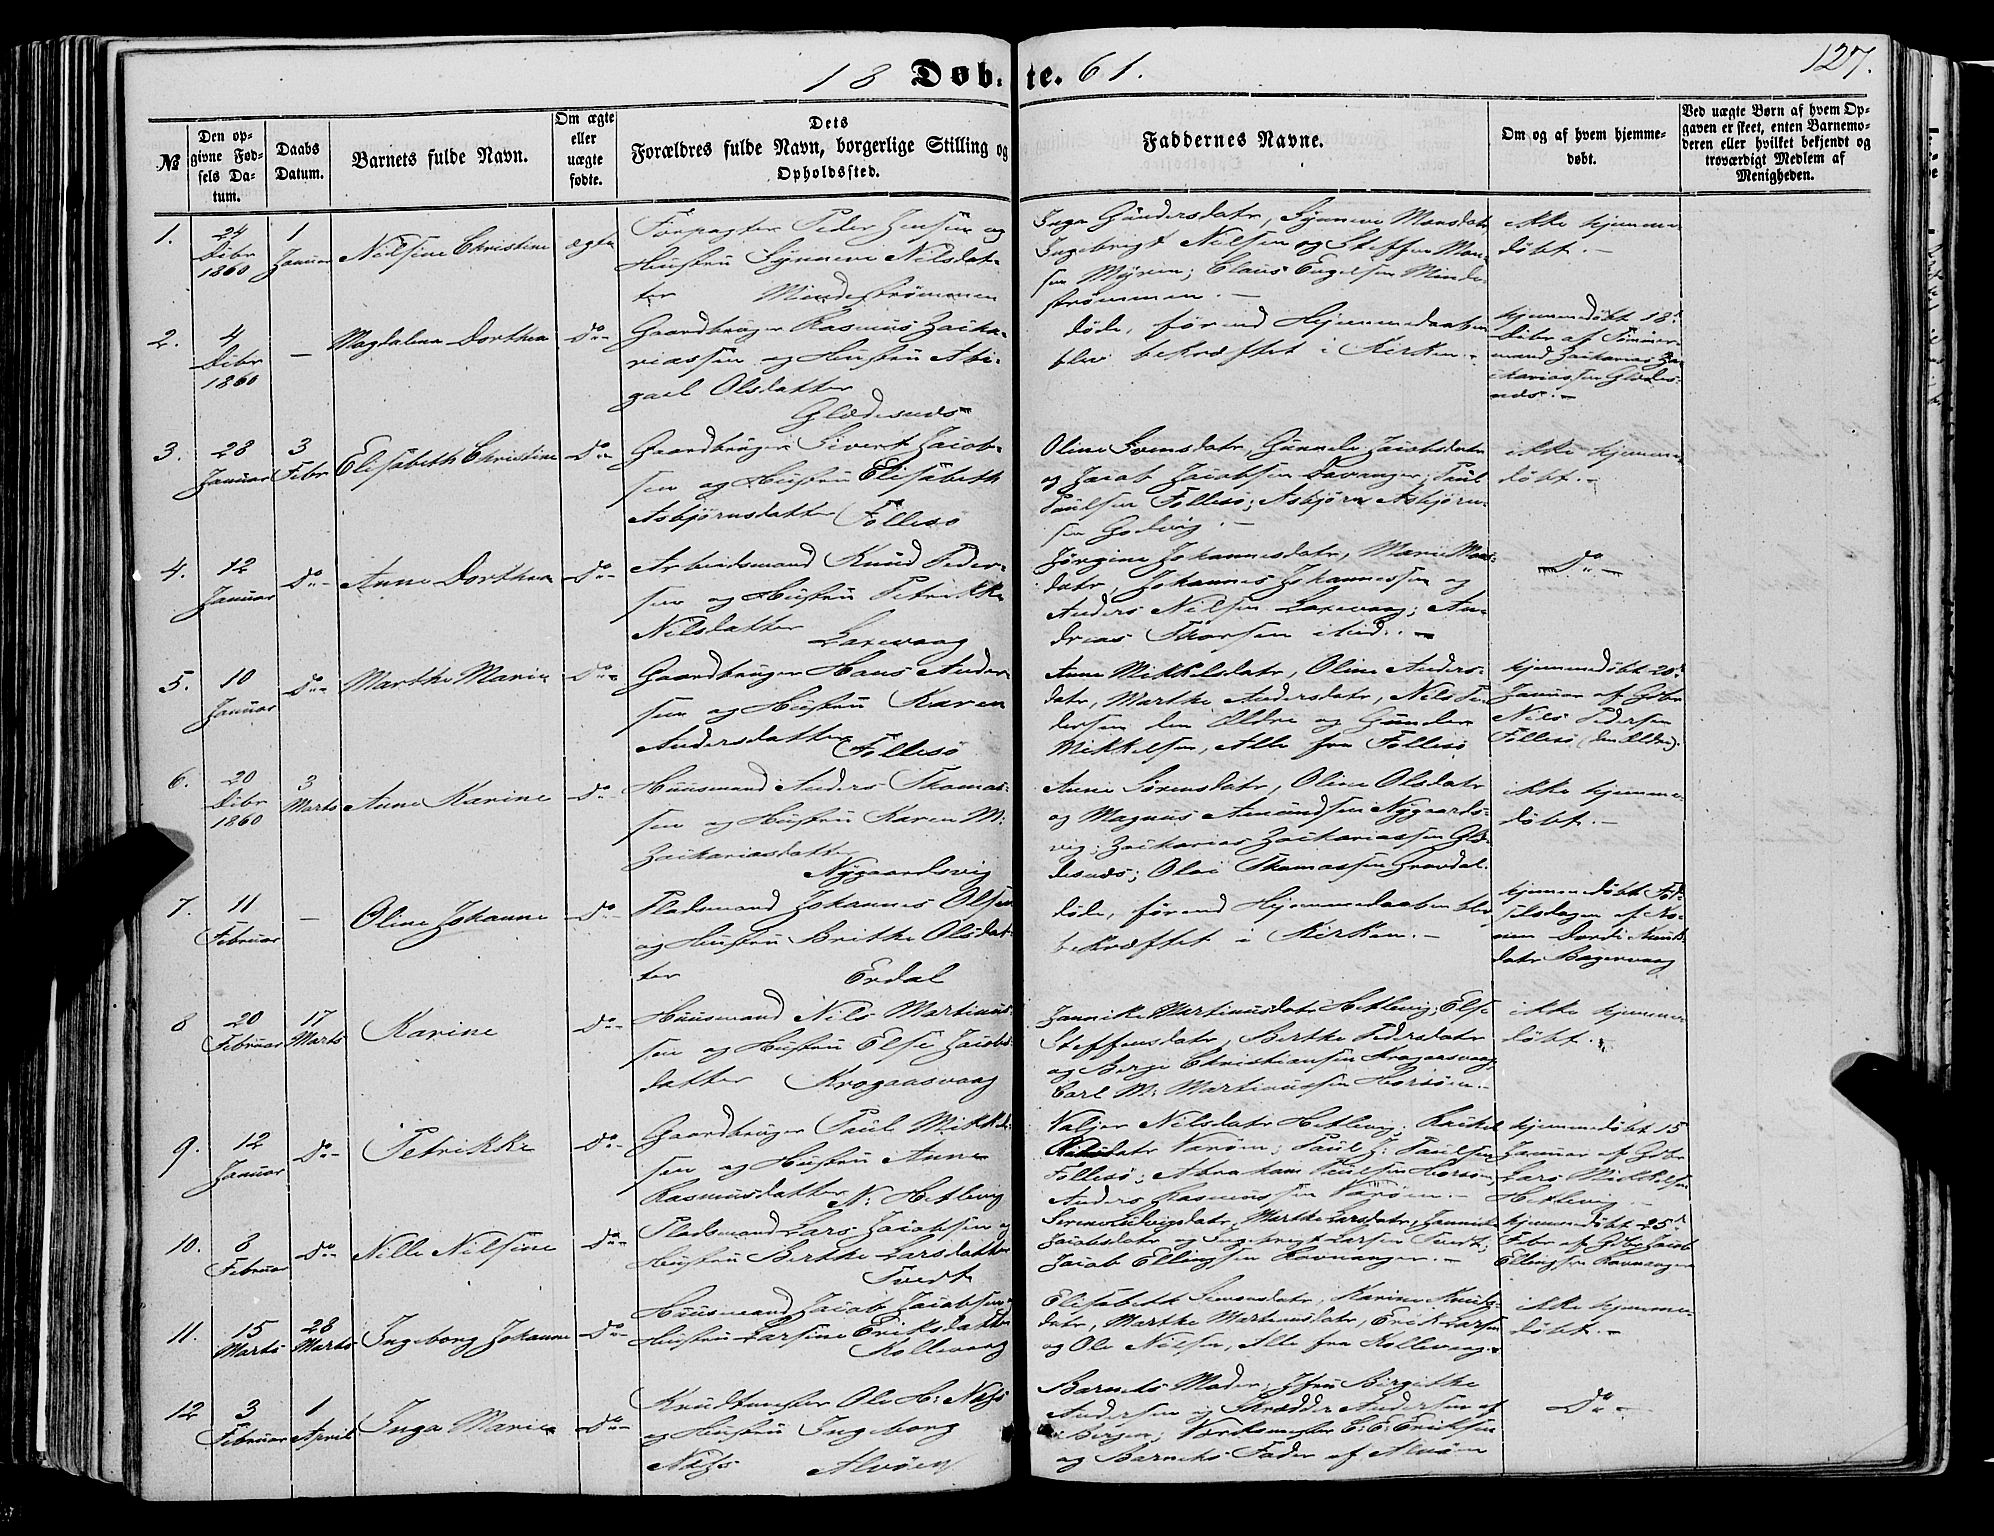 127.
18 Døbte. 61.
№
Den opgivne Fødsels Datum.
Daabs Datum.
Barnets fulde Navn.
Om ægte eller uægte fødte.
Dets Forældres fulde Navn, borgerlige Stilling og Opholdssted.
Faddernes Navne.
Om og af hvem hjemmedøbt.
Ved uægte Børn af hvem Opgaven er skeet, enten Barnemoderen eller hvilket bekjendt og troværdigt Medlem af Menigheden.
1.
24 Dcbr 1860
1 Januar
Nilsine Christine
ægte
Forpagter Peder Jensen og
Hustru Synneve Nilsdat-
ter Mindestrømmen
Inga Gundersdatr, Synneve Monsdatr
Ingebrigt Nilsen og Steffen Mon-
sen Myren; Claus Engelsen Minde-
strømmen.-
ikke hjemme-
døbt.-
2.
4 Dcbr 1860
-
Magdalena Dorthea
Do-
Gaardbruger Rasmus Zacha-
riassen og Hustru Abi-
gael Olsdatter
Glædesnæs
døde, førend Hjemmedaaben
blev bekræftet i Kirken.-
hjemmedøbt 18d
Dcbr af Tømmer-
mand Zacharias Za-
chariassen Glædes-
næs.-
3.
28 Januar
3 Febr
Elisabeth Christine
Do-
Gaardbruger Sivert Jacob-
sen og Hustru Elisabeth
Asbjørnsdatter Follesø
Oline Svensdatr, Gunnele Jacobsdatr
og Jacob Jacobsen Davanger; Paul
Paulsen Follesø; Asbjørn Asbjørn-
sen Godvig.-
ikke hjemme-
døbt.-
4.
12 Januar
Do-
Anne Dorthea
Do-
Arbeidsmand Knud Peder-
sen og Hustru Petrikke
Nilsdatter Laxevaag
Jørgine Johannesdatr, Marie Mons-
datr, Johannes Johannessen og
Anders Nilsen Laxevaag; An-
dreas Thorsen ibid.-
Do-
5.
10 Januar
Do-
Marthe Marie
Do-
Gaardbruger Hans Ander-
sen og Hustru Karen
Andersdatter Follesø
Anne Mikkelsdatr, Oline Anders-
datr, Marthe Andersdatr, Nils Pe-
dersen den Ældre og Gunder
Mikkelsen, Alle fra Follesø
hjemmedøbt 20d
Januar af Gbr
Nils Pedersen
Follesø (den Ældre).
6.
20 Dcbr 1860
3 Marts
Anne Karine
Do-
Huusmand Anders Thomas-
sen og Hustru Karen M:
Zachariasdatter
Nygaardsvig
Anne Sørensdatr, Oline Olsdatr
og Magnus Amundsen Nygaards-
vig; Zacharias Zachariassen Glæ-
desnæs; Olai Thomassen Gravdal.
ikke hjemme-
døbt.-
7.
11 Februar
-
Oline Johanne
Do-
Pladsmand Johannes Olsen
og Hustru Brithe Olsdat-
ter Erdal
døde, førend Hjemmedaaben blev
bekræftet i Kirken.-
hjemmedøbt Fød-
selsdagen af Ko-
nen Dordi Knuds-
datr Bagervaag
8
20 Februar
17 Marts
Karine
Do-
Huusmand Nils Martinus-
sen og Hustru Else Jacobs-
datter Krogaasvaag
Jannike Martinusdatr Hetlevig; Else
Steffensdatr, Berthe Pedersdatr
og Berge Christiansen Krogaasvaag,
Carl M: Martinussen Horsøen.-
ikke hjemme-
døbt.-
9.
12 Januar
Do-
Petrikke
Do-
Gaardbruger Paul Mikkel-
sen og Hustru Anne
Rasmusdatter N: Hetlevig
Valjer Nilsdatr Hetlevig; Rachel
Nilsdatr Varøen; Paul J: Paulsen
Follesø; Abraham Paulsen Horsøen,
Anders Rasmussen Varøen.-
hjemmedøbt 15
Januar af Gbr
Lars Mikkelsen
Hetlevig -
10.
8 Februar
Do-
Nille Nilsine
Do-
Pladsmand Lars Jacobsen og
Hustru Berthe Larsdatter
Tvedt
Serine Ludvigsdatr, Marthe Larsdatr, Jannike
Jacobsdatr og Ingebrigt Larsen Tvedt;
Jacob Ellingsen Ravnanger.-
hjemmedøbt 25d
Febr af Gbr Jacob
Ellingsen Ravnanger
11.
15 Marts
28 Marts
Ingeborg Johanne
Do-
Huusmand Jacob Jacobsen og
Hustru Larsine Eriksdatter
Kollevaag
Elisabeth Simonsdatr, Karine Knuds-
datr, Marthe Martinusdatr, Erik Larsen
og Ole Nilsen, Alle fra Kollevaag.
ikke hjemme-
døbt.-
12
3 Februar
1 April
Inga Marie
Do-
Krudtmester Ole H: Næss
og Hustru Ingeborg
Næss Alvøen
Barnets Moder; Jfru Birgithe
Andersen og Skrædder Andersen af
Bergen; Værksmester C: E: Eriksen
og Barnets Fader af Alvøen
Do-